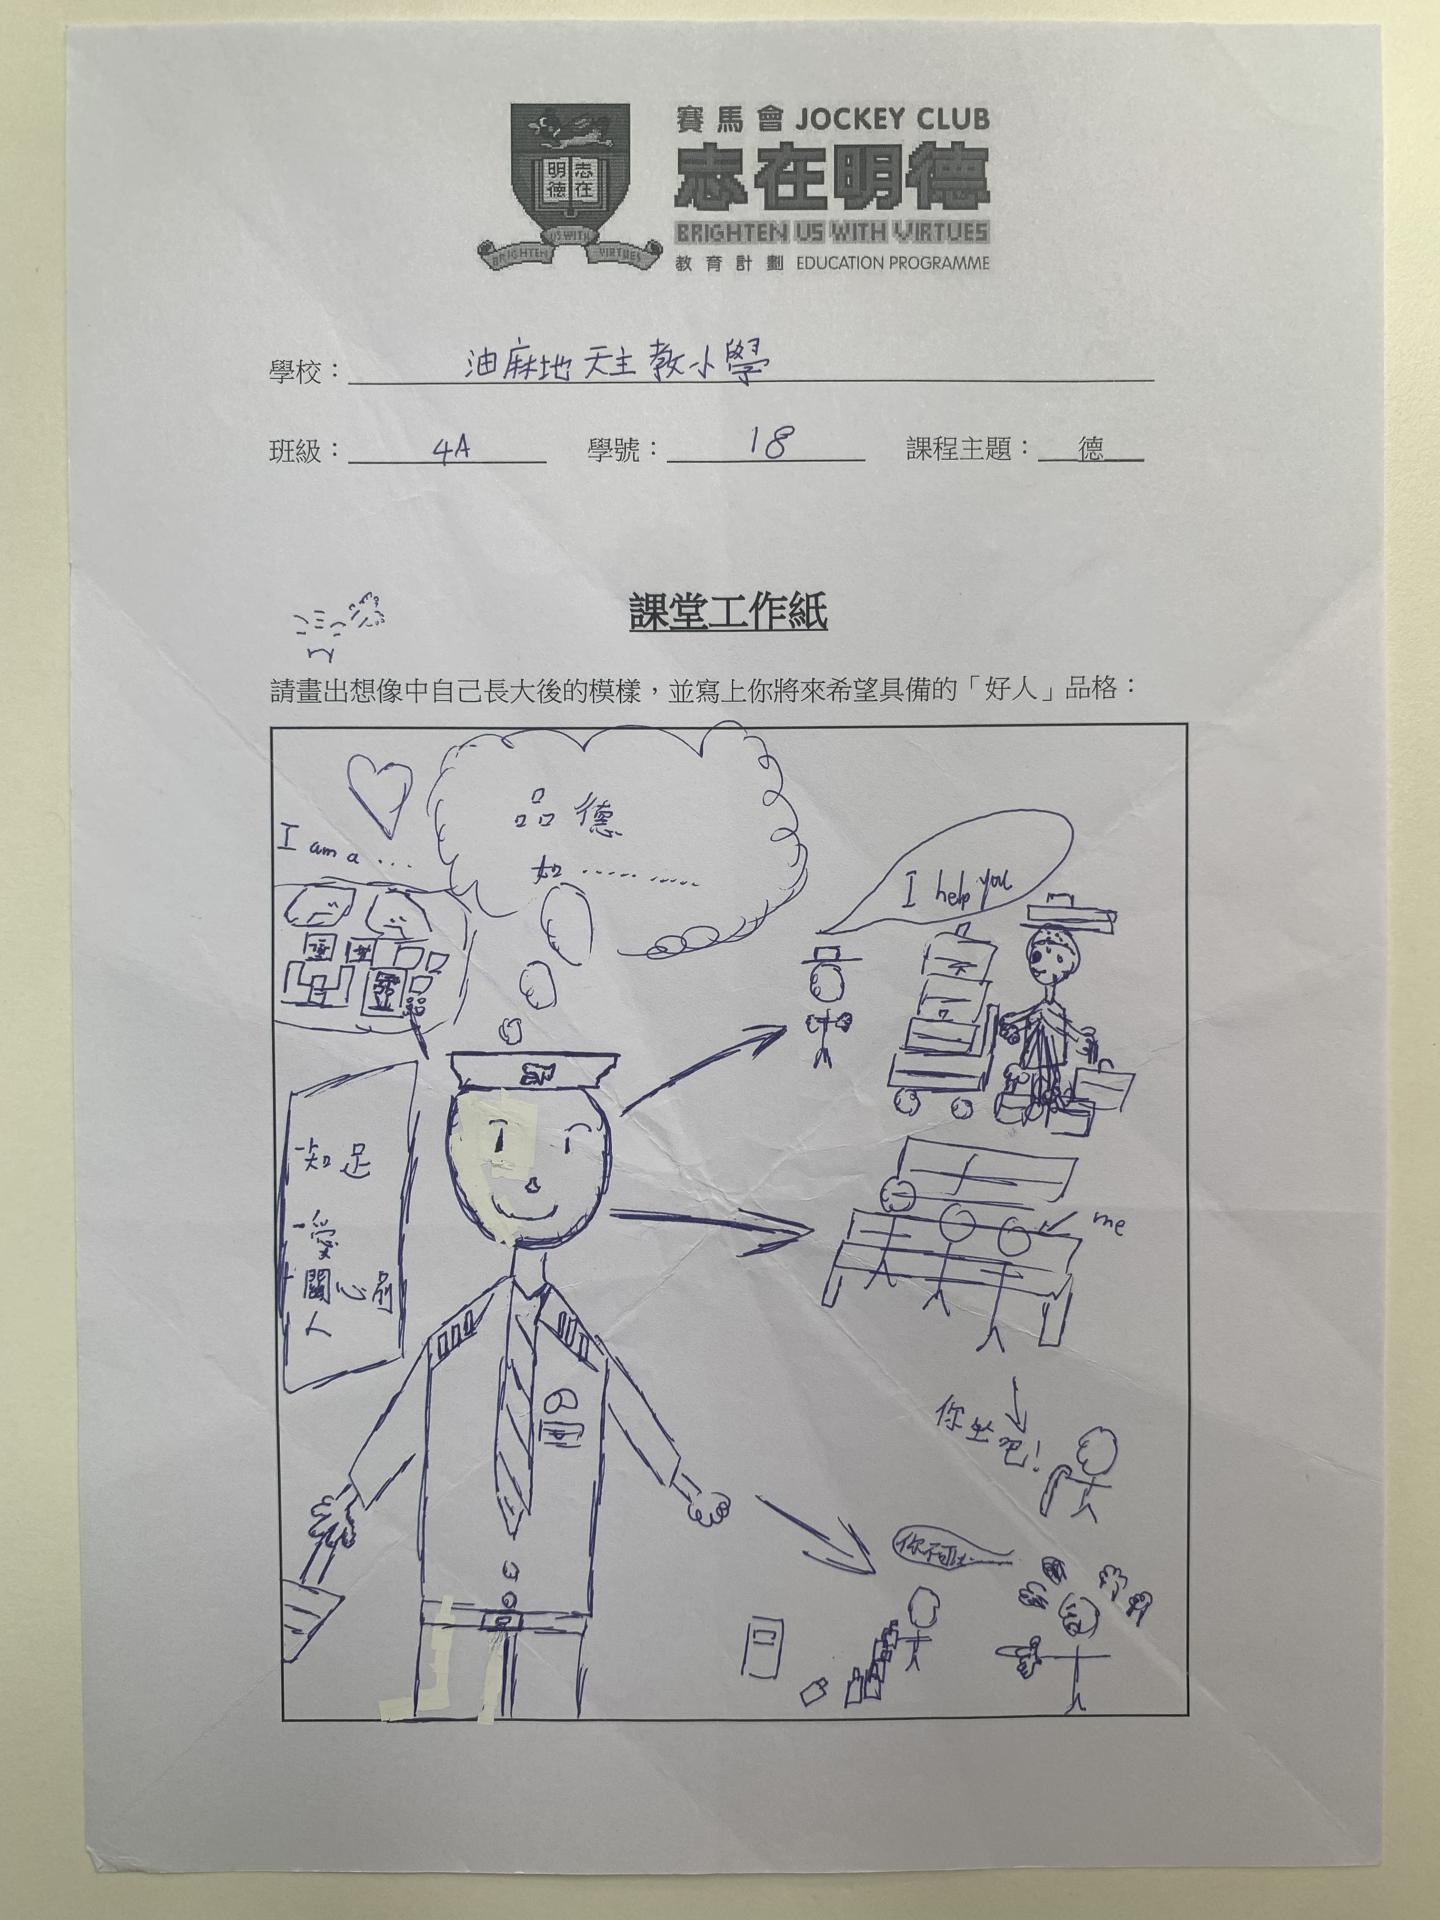 賽馬會 JOCKEY CLUB
志在明德
BRIGHTEN US WITH VIRTUES
教育計劃 EDUCATION PROGRAMME
明志
德在
BRIGHTEN US WITH VIRTUES
學校：油麻地天主教小學
班級：4A 學號：18 課程主題：德
課堂工作紙
請畫出想像中自己長大後的模樣，並寫上你將來希望具備的「好人」品格：
品德
如…………
I am a ...
I help you
-知足
-愛
關心別
人
me
你坐吧！
你不可以……